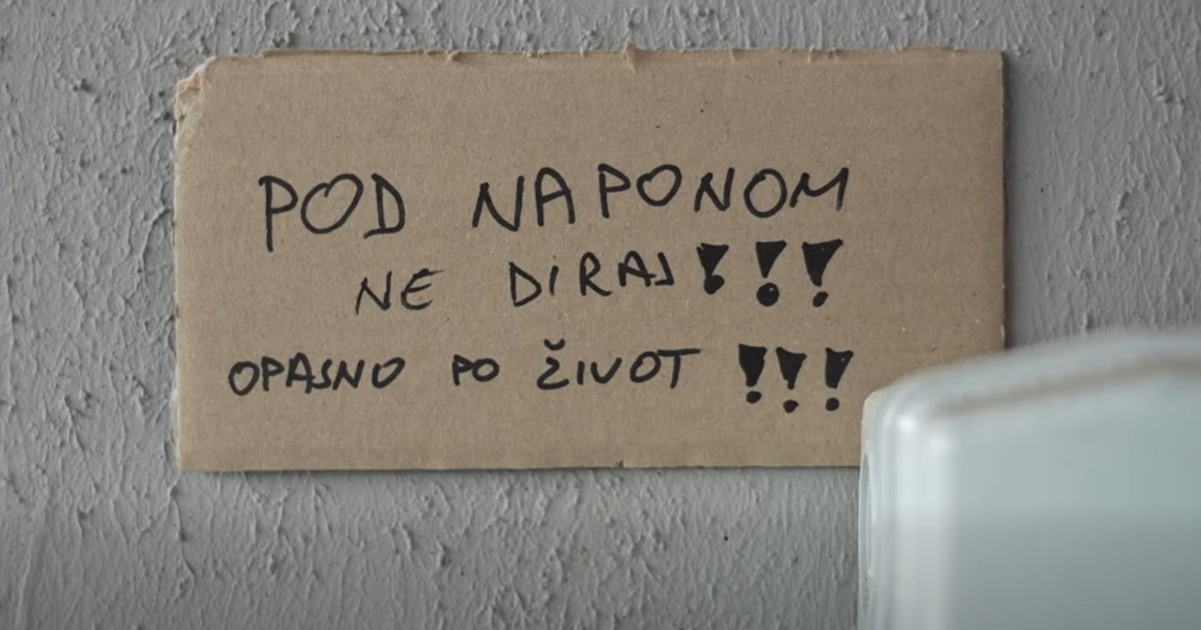 POD NAPONOM
NE DIRAJ!!!
OPASNO PO ŽIVOT !!!